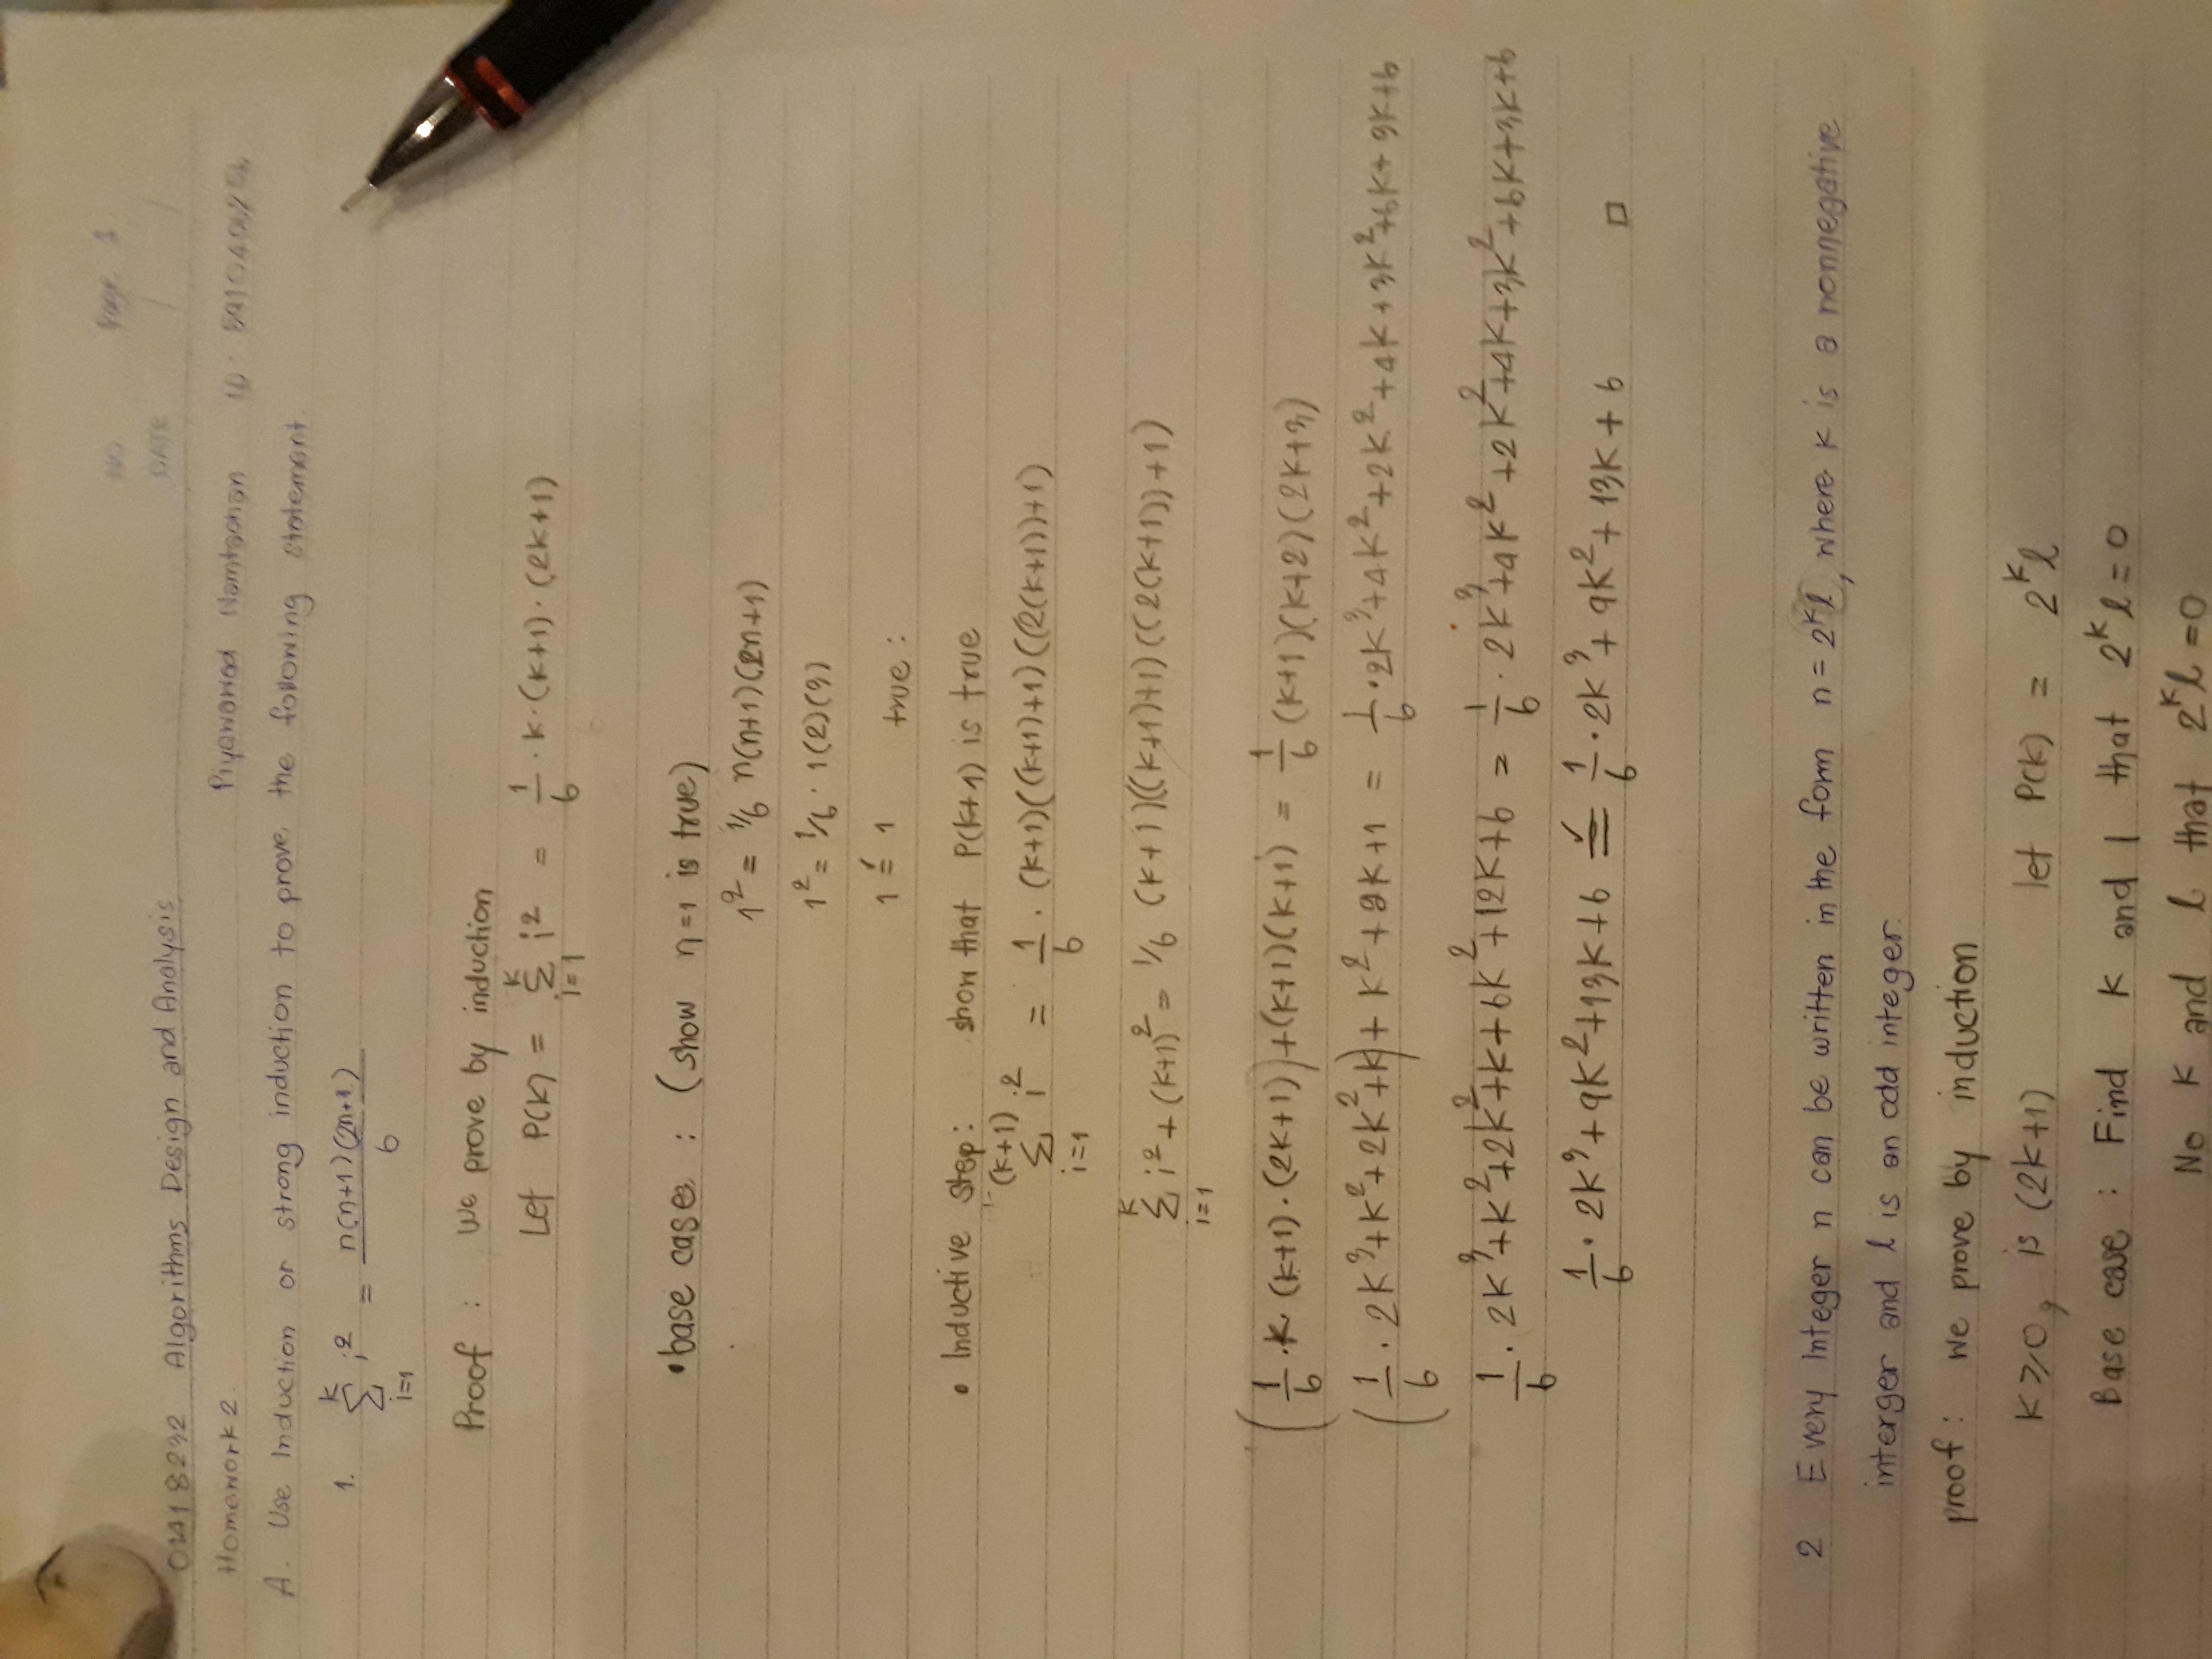 NO. Page 1
DATE / /
01418232 Algorithms Design and Analysis
Homework 2. Piyawarod Namtaohan ID:
A. Use Induction or strong induction to prove the following statement.
1. \sum_{i=1}^{k} i^2 = \frac{n(n+1)(2n+1)}{6}
Proof : We prove by induction
Let P(k) = \sum_{i=1}^{k} i^2 = \frac{1}{6} · k · (k+1) · (2k+1)
• base case : (show n=1 is true)
1^2 = 1/6 n(n+1)(2n+1)
1^2 = 1/6 · 1(2)(3)
1 =✓ 1 true :
• Inductive Step: show that P(k+1) is true
\sum_{i=1}^{(k+1)} i^2 = \frac{1}{6} · (k+1)((k+1)+1)((2(k+1))+1)
\sum_{i=1}^{k} i^2 + (k+1)^2 = 1/6 (k+1)((k+1)+1)((2(k+1))+1)
(\frac{1}{6} · k · (k+1) · (2k+1)) + (k+1)(k+1) = \frac{1}{6} (k+1)(k+2)(2k+3)
(\frac{1}{6} · 2k^3+k^2+2k^2+k) + k^2+2k+1 = \frac{1}{6} · 2k^3+4k^2+2k^2+4k+3k^2+6k+3k+6
\frac{1}{6} · 2k^3+k^2+2k^2+k+6k^2+12k+6 = \frac{1}{6} · 2k^3+4k^2+2k^2+4k+3k^2+6k+3k+6
\frac{1}{6} · 2k^3+9k^2+13k+6 =✓ \frac{1}{6} · 2k^3+9k^2+13k+6 □
2 Every Integer n can be written in the form n = 2^k l, where k is a nonnegative
interger and l is an odd integer.
proof : We prove by induction
k ≥ 0, is (2k+1) let P(k) = 2^k l
Base case : Find k and l that 2^k l = 0
No k and l that 2^k l = 0